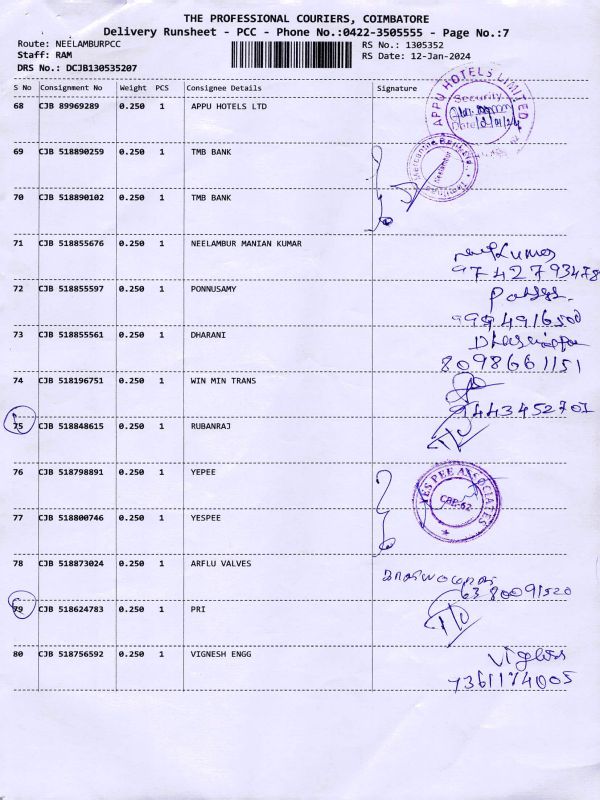 THE PROFESSIONAL COURIERS, COIMBATORE
Delivery Runsheet - PCC - Phone No.:0422-3505555 - Page No.:7
Route: NEELAMBURPCC RS No.: 1305352
Staff: RAM RS Date: 12-Jan-2024
DRS No.: DCJB130535207
S No Consignment No Weight PCS Consignee Details Signature
68 CJB 89969289 0.250 1 APPU HOTELS LTD
APPU HOTELS LIMITED
Security
Date
69 CJB 518890259 0.250 1 TMB BANK
Mercantile Bank
Neelambur
70 CJB 518890102 0.250 1 TMB BANK
71 CJB 518855676 0.250 1 NEELAMBUR MANIAN KUMAR
9742793478
72 CJB 518855597 0.250 1 PONNUSAMY
9994916500
73 CJB 518855561 0.250 1 DHARANI
8098661151
74 CJB 518196751 0.250 1 WIN MIN TRANS
9443452701
75 CJB 518848615 0.250 1 RUBANRAJ
76 CJB 518798891 0.250 1 YEPEE
YES PEE ASSOCIATES
CBE-62
77 CJB 518800746 0.250 1 YESPEE
78 CJB 518873024 0.250 1 ARFLU VALVES
6380091520
79 CJB 518624783 0.250 1 PRI
80 CJB 518756592 0.250 1 VIGNESH ENGG